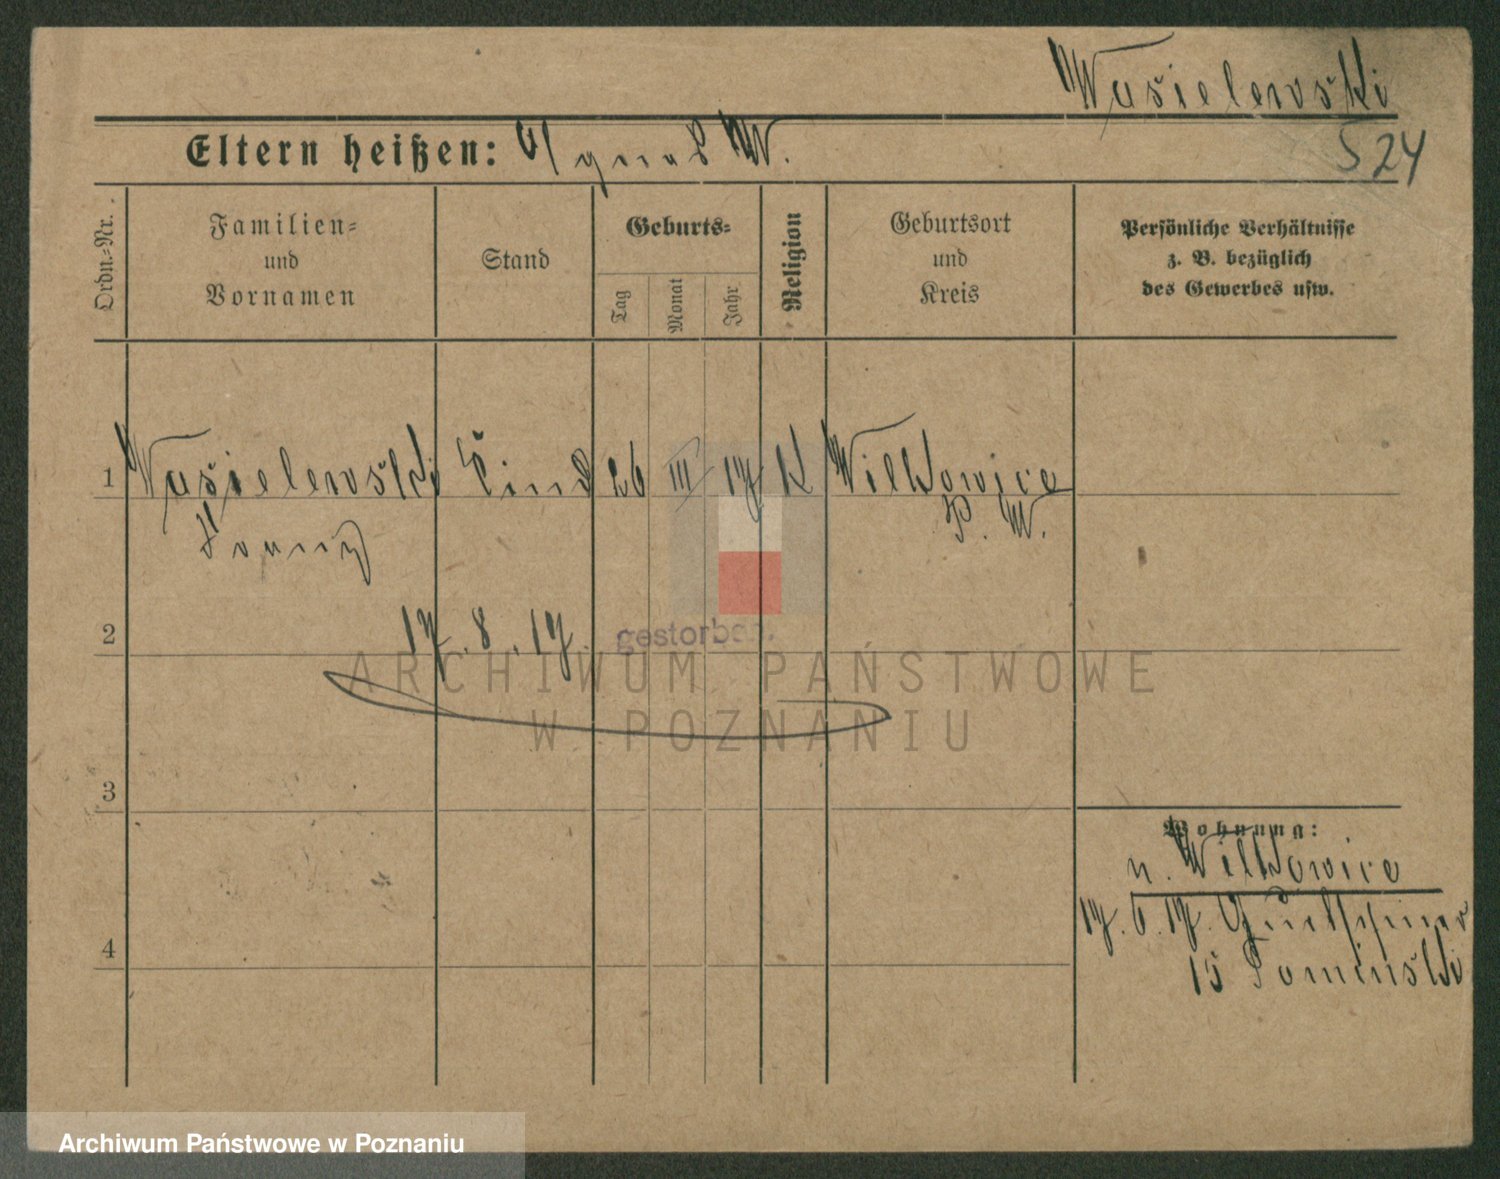 Wasielewski
524
Eltern heißen: Agnes W.
Ordn.-Nr.
Familien-
und
Vornamen
Stand
Geburts-
Tag
Monat
Jahr
Religion
Geburtsort
und
Kreis
Persönliche Verhältnisse
z. B. bezüglich
des Gewerbes usw.
1 Wasielewski Kind 26 III 17 K Wilkowice
Franz P. W.
2 17.8.17. gestorben.
3
4
Wohnung:
n. Wilkowice
17.6.17.
15
ARCHIWUM PAŃSTWOWE
W POZNANIU
Archiwum Państwowe w Poznaniu